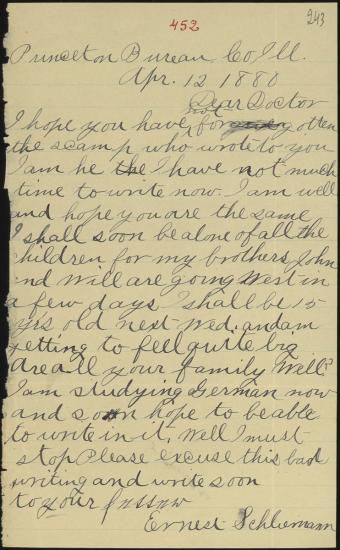 452
243
Princeton Bureau Co Ill.
Apr. 12 1880
Dear Doctor
I hope you have not forgotten
the scamp who wrote to you
I am he the I have not much
time to write now. I am well
and hope you are the same
I shall soon be alone of all the
children for my brothers John
nd Will are going West in
a few days I shall be 15
yrs old next Wed. and am
getting to feel quite big
Are all your family Well?
I am studying German now
and soon hope to be able
to write in it. Well I must
stop Please excuse this bad
writing and write soon
to your
Ernest Schliemann